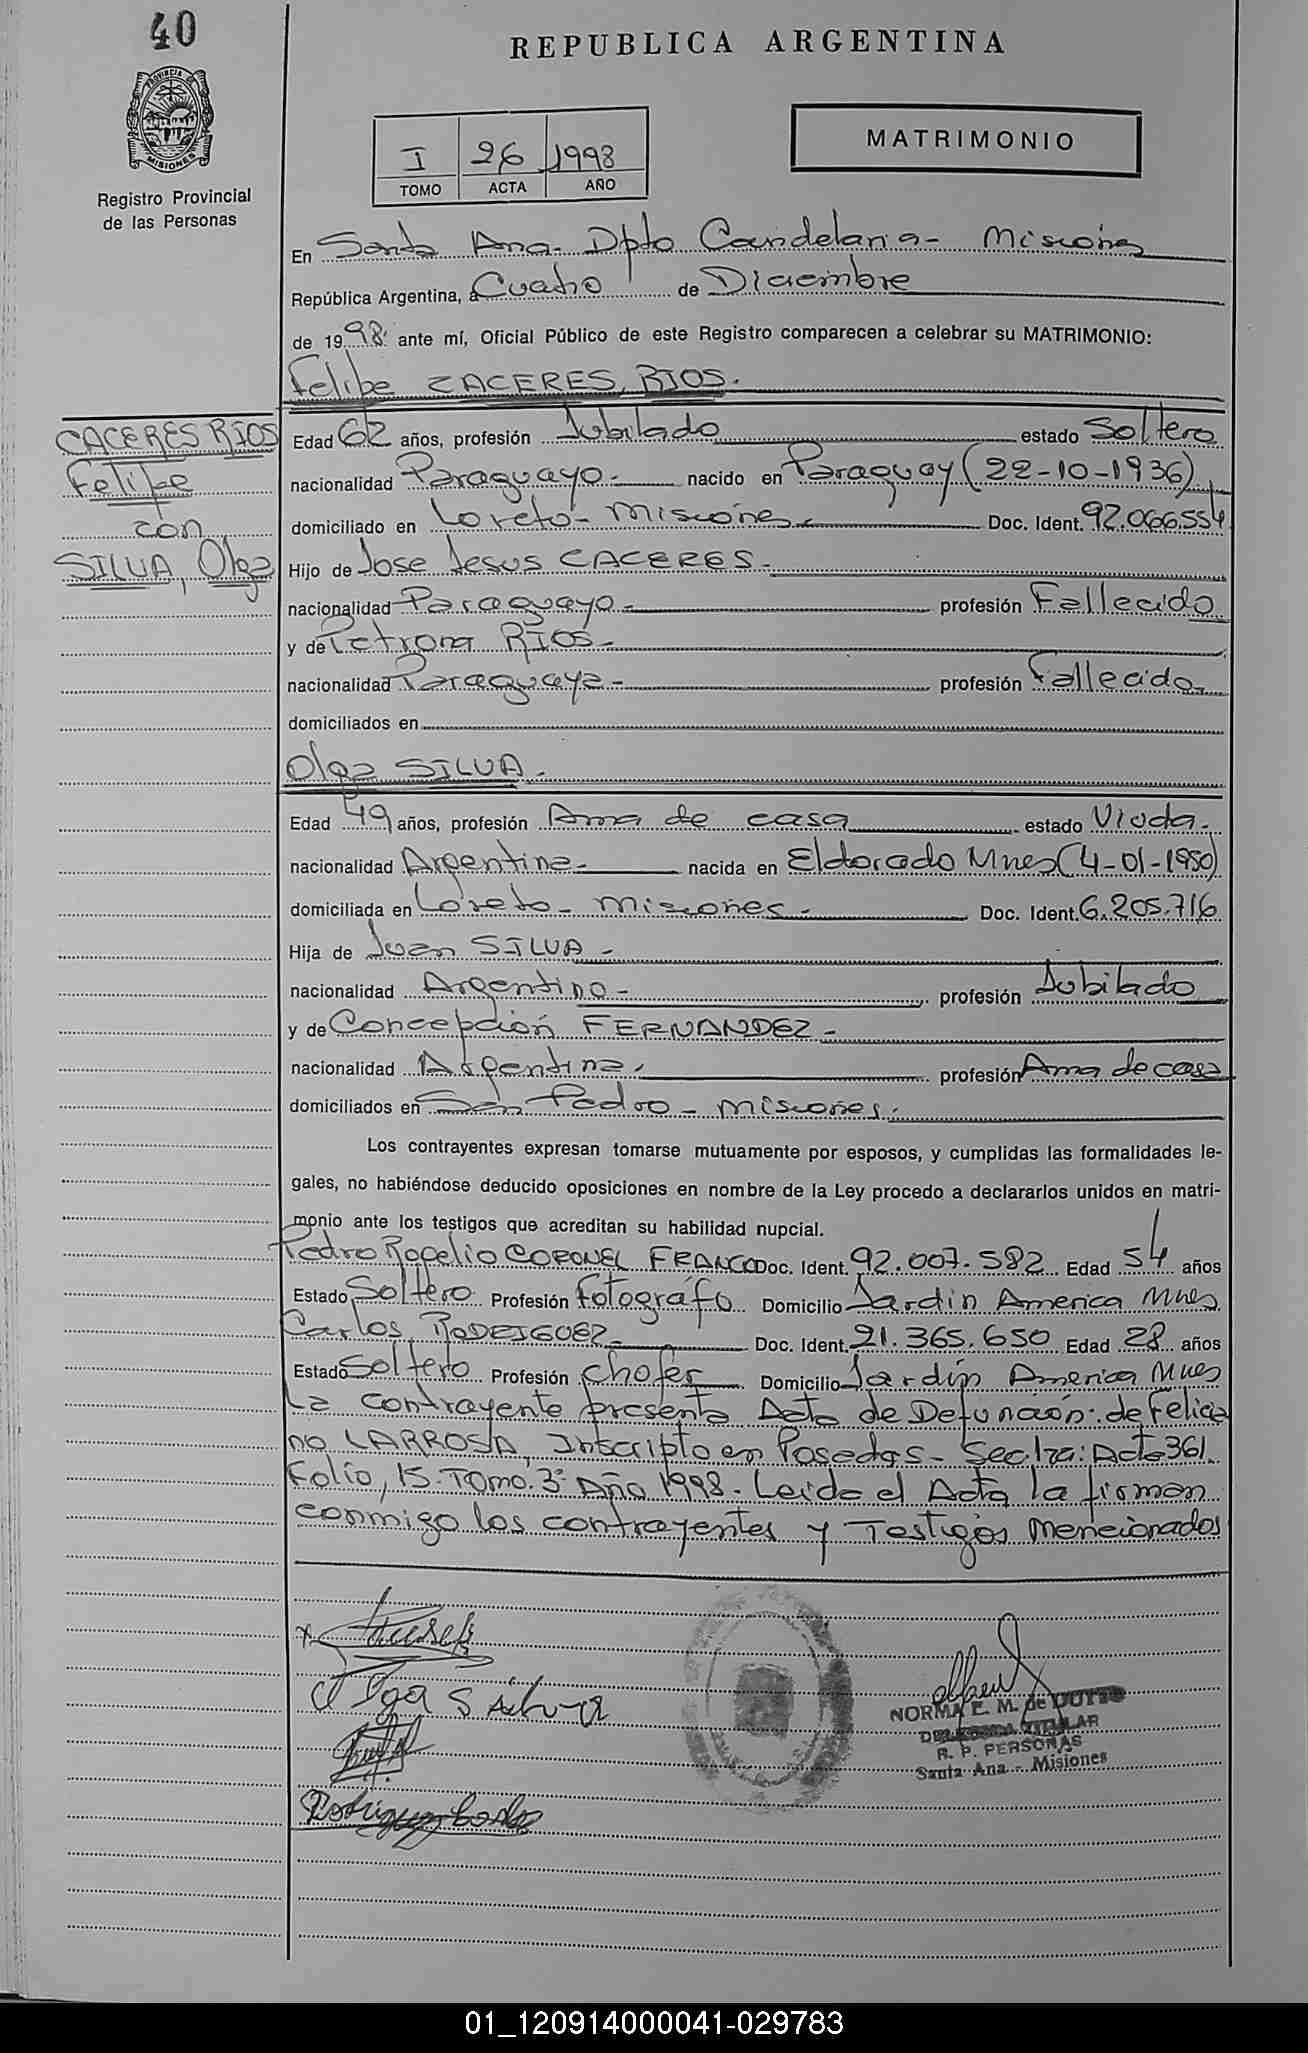 40
REPUBLICA ARGENTINA
PROVINCIA DE
MISIONES
Registro Provincial
de las Personas
I 26 1998
TOMO ACTA AÑO
MATRIMONIO
En Santa Ana- Dpto Candelaria- Misiones
República Argentina, a Cuatro de Diciembre
de 1998. ante mí, Oficial Público de este Registro comparecen a celebrar su MATRIMONIO:
Felipe CACERES RIOS.
CACERES RIOS
Felipe
con
SILVA, Olga
Edad 62 años, profesión Jubilado estado Soltero
nacionalidad Paraguayo- nacido en Paraguay (22-10-1936)
domiciliado en Loreto- Misiones- Doc. Ident. 92.066.554
Hijo de Jose Jesus CACERES-
nacionalidad Paraguayo- profesión Fallecido
y de Petrona RIOS-
nacionalidad Paraguaya- profesión Fallecido-
domiciliados en
Olga SILVA-
Edad 49 años, profesión Ama de casa estado Viuda-
nacionalidad Argentina- nacida en Eldorado Mnes (4-01-1950)
domiciliada en Loreto- Misiones- Doc. Ident. 6.205.716
Hija de Juan SILVA-
nacionalidad Argentino- profesión Jubilado
y de Concepción FERNANDEZ-
nacionalidad Argentina- profesión Ama de casa
domiciliados en San Pedro- Misiones.
Los contrayentes expresan tomarse mutuamente por esposos, y cumplidas las formalidades le-
gales, no habiéndose deducido oposiciones en nombre de la Ley procedo a declararlos unidos en matri-
monio ante los testigos que acreditan su habilidad nupcial.
Pedro Rogelio CORONEL FRANCO Doc. Ident. 92.007.582 Edad 54 años
Estado Soltero Profesión Fotográfo Domicilio Jardin America Mnes
Carlos RODRIGUEZ- Doc. Ident. 21.365.650 Edad 28 años
Estado Soltero Profesión Chofer Domicilio Jardin America Mnes
La contrayente presenta Acta de Defunción: de Felicia
no LARROSA, Inscripto en Posadas- Sec. 1ra: Acta 361
Folio, 15- Tomo. 3° Año 1998- Leida el Acta la firman
conmigo los contrayentes y Testigos Mencionados
x
Olga Silva
NORMA E. M. de
DELEGADA TITULAR
R. P. PERSONAS
Santa Ana - Misiones
Rodriguez Carlos
01_120914000041-029783